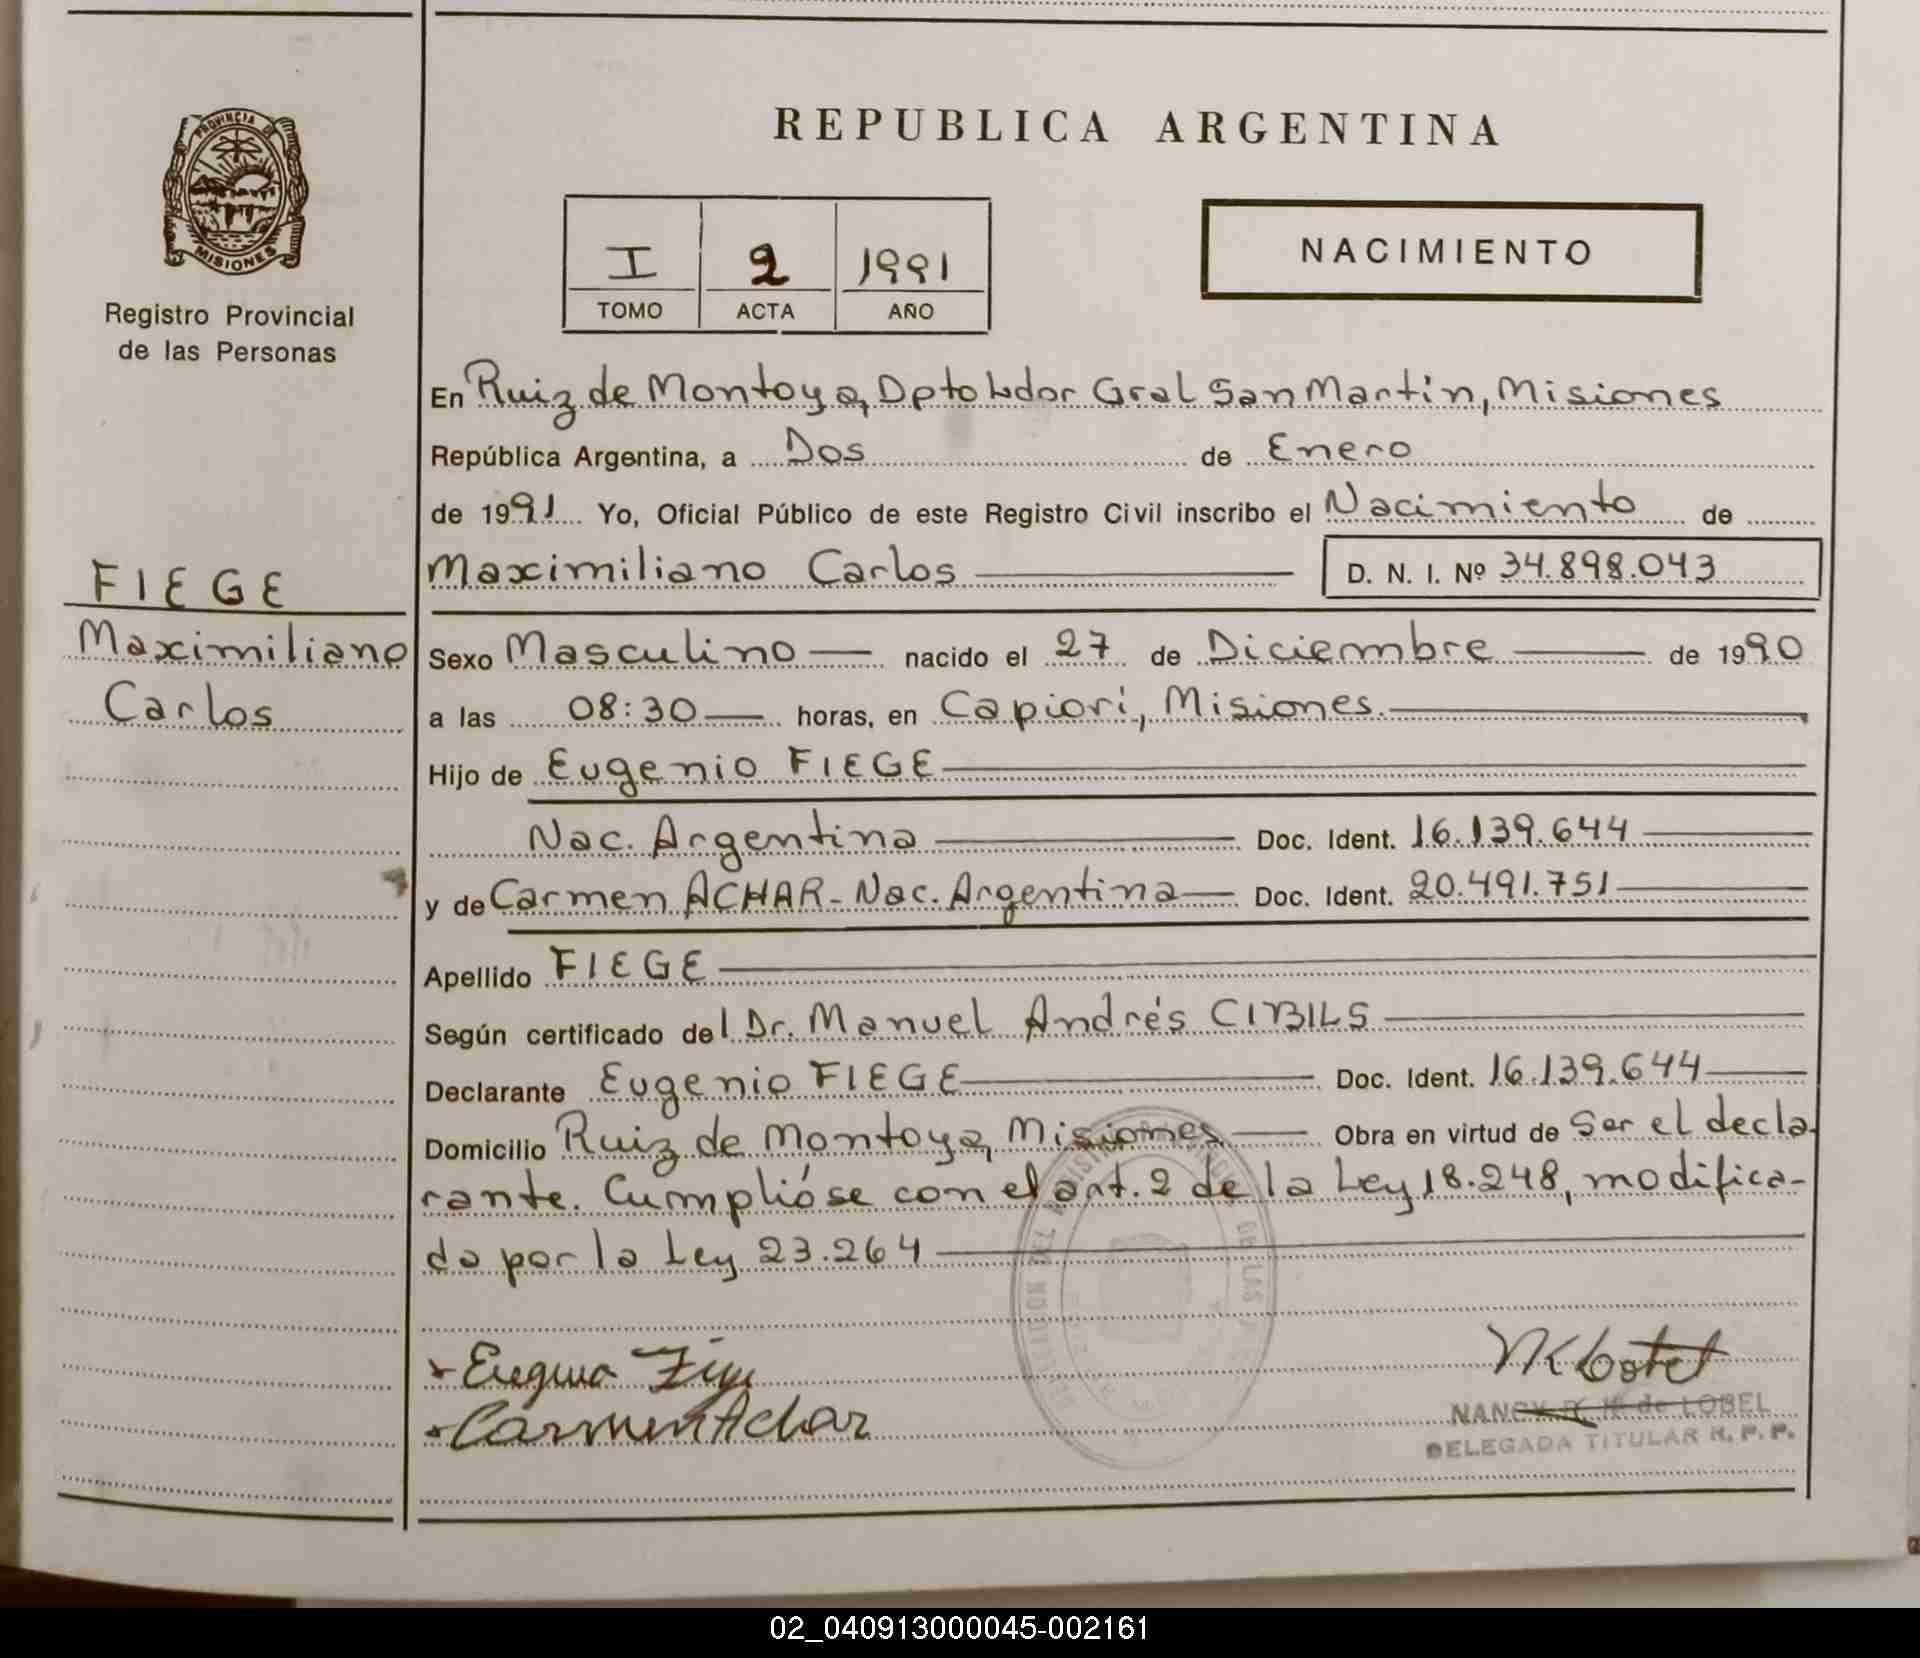 PROVINCIA DE
MISIONES
Registro Provincial
de las Personas
FIEGE
Maximiliano
Carlos
REPUBLICA ARGENTINA
I 2 1991
TOMO ACTA AÑO
NACIMIENTO
En Ruiz de Montoya, Dpto Ldor Gral San Martín, Misiones
República Argentina, a Dos de Enero
de 1991 Yo, Oficial Público de este Registro Civil inscribo el Nacimiento de
Maximiliano Carlos D. N. I. Nº 34.898.043
Sexo Masculino nacido el 27 de Diciembre de 1990
a las 08:30 horas, en Capiori, Misiones.
Hijo de Eugenio FIEGE
Nac. Argentina Doc. Ident. 16.139.644
y de Carmen ACHAR - Nac. Argentina Doc. Ident. 20.491.751
Apellido FIEGE
Según certificado del Dr. Manuel Andrés CIBILS
Declarante Eugenio FIEGE Doc. Ident. 16.139.644
Domicilio Ruiz de Montoya, Misiones Obra en virtud de Ser el decla-
rante. Cumplióse con el art. 2 de la Ley 18.248, modifica-
da por la Ley 23.264
Carmen Achar
NANCY R. H. de LOBEL
DELEGADA TITULAR R. P. P.
02_040913000045-002161